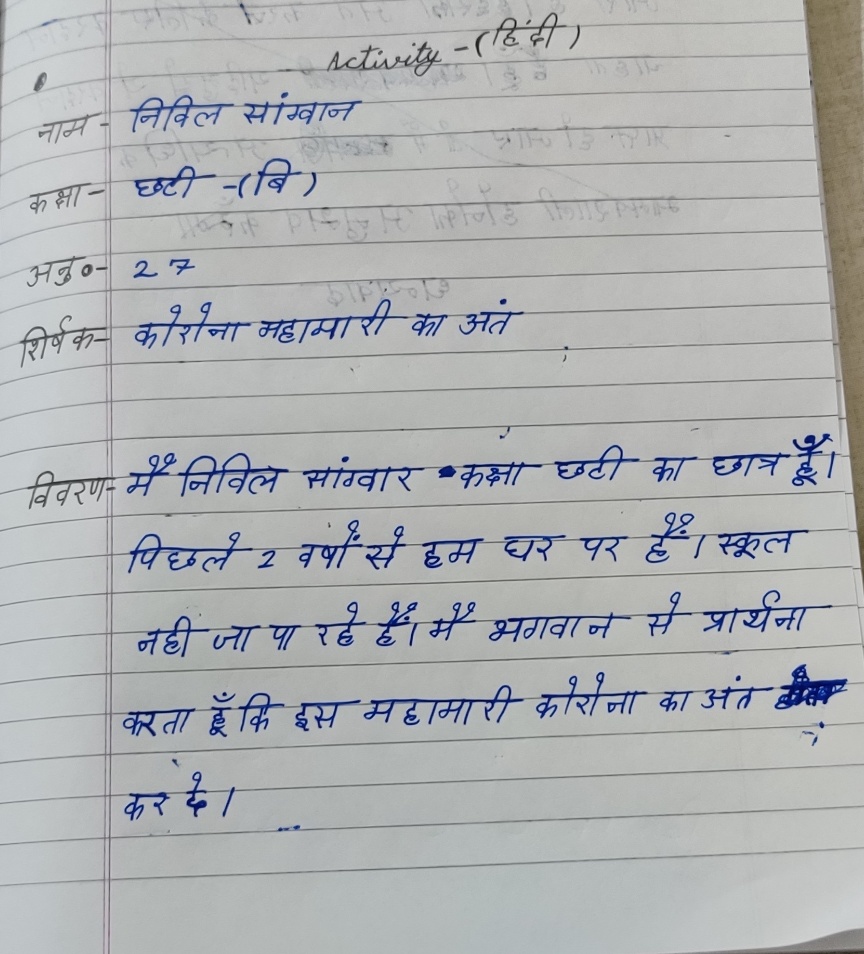 Activity - (हिंदी)
नाम - निविल सांग्वान
कक्षा - छटी - (बि)
अनु० - 27
शिर्षक - कोरोना महामारी का अतं
विवरण - मैं निविल सांग्वार कक्षा छटी का छात्र हूँ।
पिछले 2 वर्षों से हम घर पर हैं। स्कूल
नही जा पा रहे हैं। मैं भगवान से प्रार्थना
करता हूँ कि इस महामारी कोरोना का अंत
कर दे।